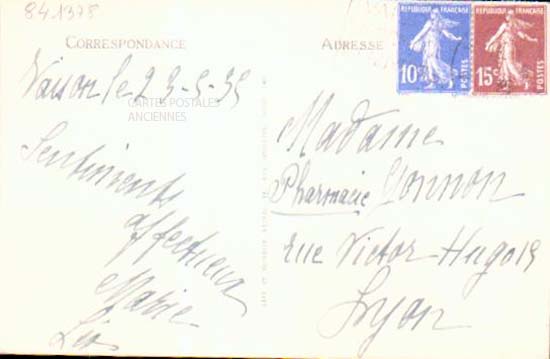 84 1378
CORRESPONDANCE
ADRESSE
RÉPUBLIQUE FRANÇAISE
10c
POSTES
RÉPUBLIQUE FRANÇAISE
15c
POSTES
Vaison le 23-5-35
CARTES POSTALES
ANCIENNES
Sentiments
affectueux
Marie
Léo
Madame
Pharmacie Gonnon
rue Victor Hugo 19
Lyon